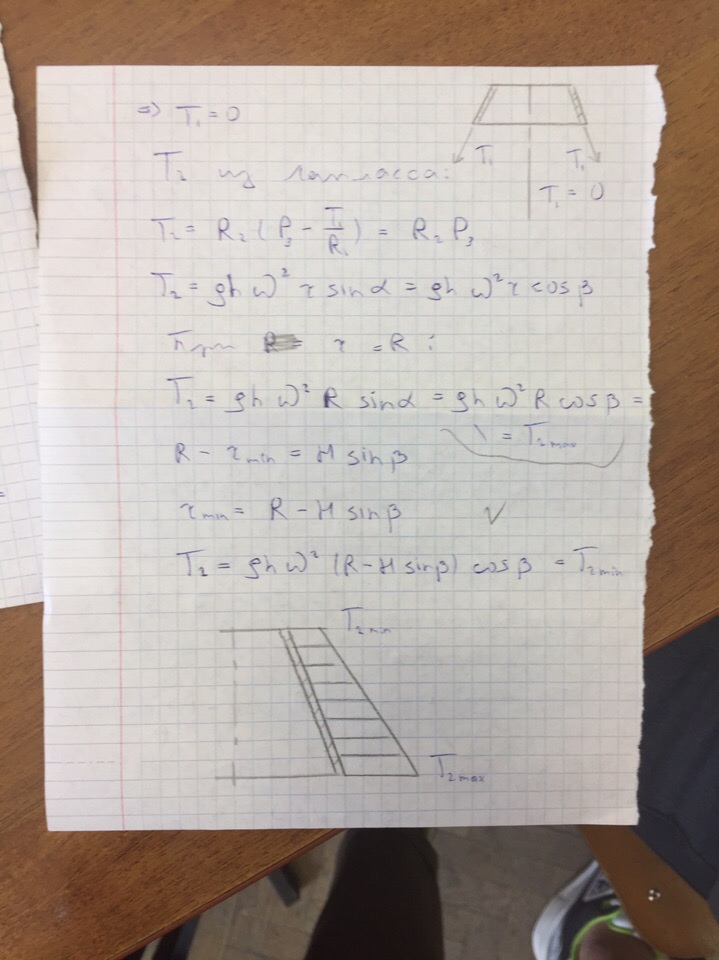 => T₁ = 0
T₁ T₁
T₁ = 0
T₂ из лапласса:
T₂ = R₂ (P₃ - T₁/R₁) = R₂ P₃
T₂ = ρh ω² r sin α = ρh ω² r cos β
При r = R :
T₂ = ρh ω² R sin α = ρh ω² R cos β =
= T₂ max
R - r min = H sin β
r min = R - H sin β ✓
T₂ = ρh ω² (R - H sin β) cos β = T₂ min
T₂ min
T₂ max